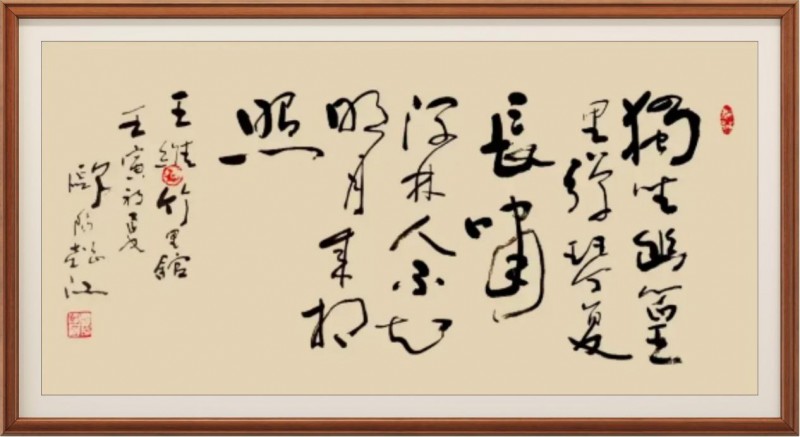 獨坐幽篁
里彈琴复
長嘯
深林人不知
明月来相
照
王維竹里館
壬寅初夏
歐陽江